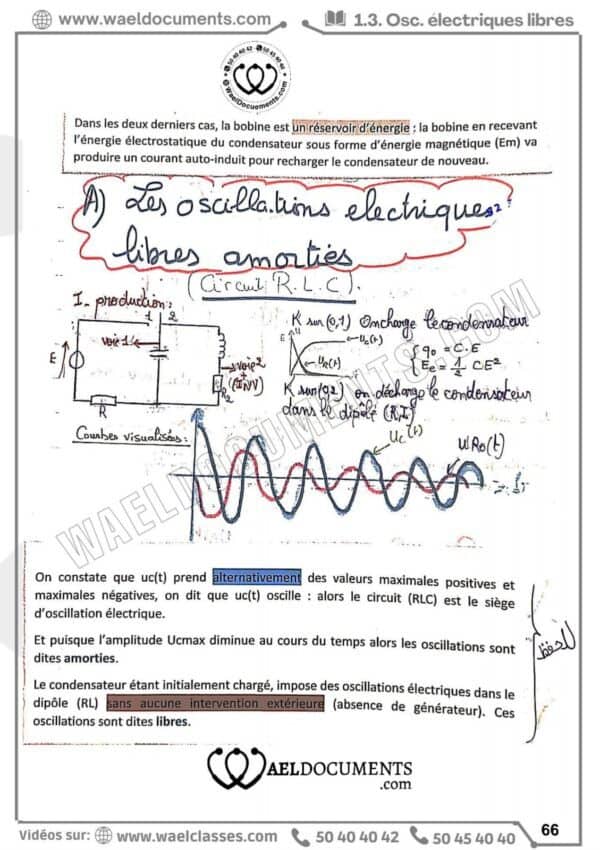 www.waeldocuments.com
1.3. Osc. électriques libres
Dans les deux derniers cas, la bobine est un réservoir d'énergie : la bobine en recevant
l'énergie électrostatique du condensateur sous forme d'énergie magnétique (Em) va
produire un courant auto-induit pour recharger le condensateur de nouveau.
A) Les oscillations electriques
libres amorties
(Circuit R.L.C).
I- production:
1 2
voie 1
E
R
voie 2
+
(INV)
R2
K sur (0,1) On charge le condensateur
E
uc(t)
uR(t)
q0 = C.E
Ee = 1/2 CE²
K sur (92) on décharge le condensateur
dans le dipôle (R,L)
Courbes visualisées:
uc(t)
uR0(t)
WAELDOCUMENTS.COM
On constate que uc(t) prend alternativement des valeurs maximales positives et
maximales négatives, on dit que uc(t) oscille : alors le circuit (RLC) est le siège
d'oscillation électrique.
Et puisque l'amplitude Ucmax diminue au cours du temps alors les oscillations sont
dites amorties.
Le condensateur étant initialement chargé, impose des oscillations électriques dans le
dipôle (RL) sans aucune intervention extérieure (absence de générateur). Ces
oscillations sont dites libres.
للحفظ
WAELDOCUMENTS
.com
66
Vidéos sur: www.waelclasses.com 50 40 40 42 50 45 40 40